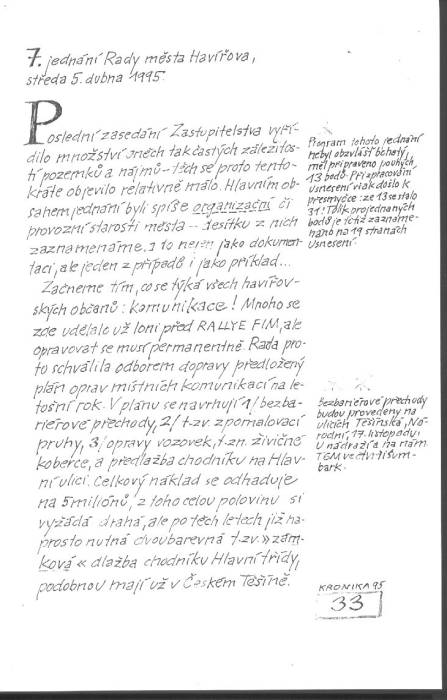 7. jednání Rady města Havířova,
středa 5. dubna 1995.
Poslední zasedání Zastupitelstva vyří-
dilo množství oněch tak častých záležitos-
tí pozemků a nájmů – těch se proto tento-
kráte objevilo relativně málo. Hlavním ob-
sahem jednání byli spíše organizační či
provozní starosti města – desítku z nich
zaznamenáme. I to nejen jako dokumen-
taci, ale jeden z případě i jako příklad...
Začneme tím, co se týká všech havířov-
ských občanů: komunikace! Mnoho se
zde udělalo už loni před RALLYE FIM, ale
opravovat se musí permanentně. Rada pro-
to schválila odborem dopravy předložený
plán oprav místních komunikací na le-
tošní rok. V plánu se navrhují 1/ bezba-
riérové přechody, 2/ t.zv. zpomalovací
pruhy, 3/ opravy vozovek, t.zn. živičné
koberce, a předlažba chodníku na Hlav-
ní ulici. Celkový náklad se odhaduje
na 5 miliónů, z toho celou polovinu si
vyžádá drahá, ale po těch letech již na-
prosto nutná dvoubarevná t.zv. »zám-
ková« dlažba chodníku Hlavní třídy,
podobnou mají už v Českém Těšíně.
Program tohoto jednání
nebyl obzvlášť bohatý,
měl připraveno pouhých
13 bodů. Při zpracování
Usnesení však došlo k
přesmyčce: ze 13 se stalo
31! Tolik projednaných
bodů je totiž zazname-
náno na 19 stranách
Usnesení.
Bezbariérové přechody
budou provedeny na
ulicích Těšínská, Ná-
rodní, 17. listopadu,
U nádraží a na nám.
TGM ve čtvrti Šum-
bark.
KRONIKA 95
33